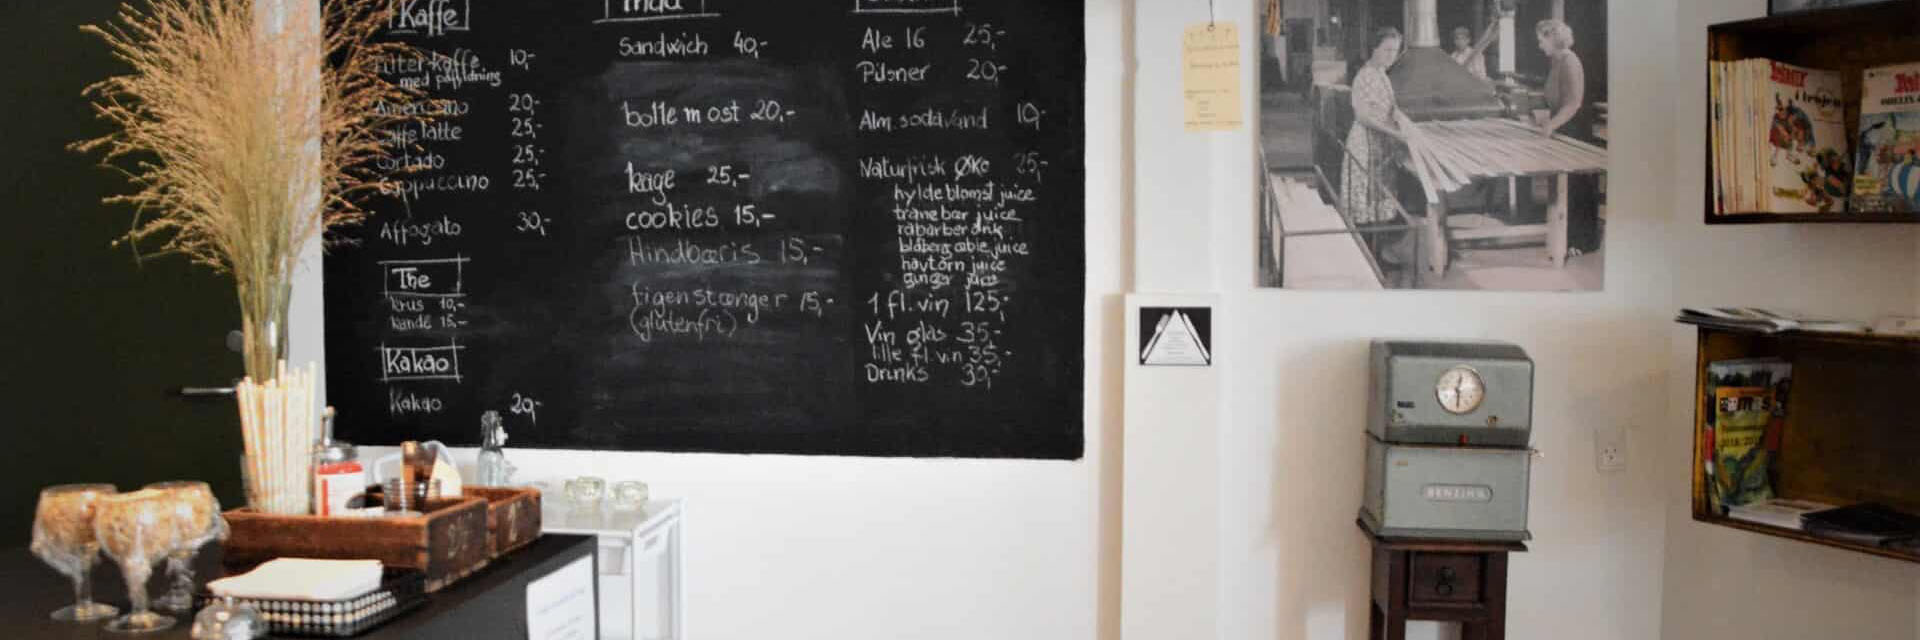 Kaffe
Filterkaffe 10,-
med påfyldning
Americano 20,-
Kaffe latte 25,-
Cortado 25,-
Cappuccino 25,-
Affogato 30,-
The
krus 10,-
kande 15,-
Kakao
Kakao 20,-
Mad
Sandwich 40,-
bolle m ost 20,-
kage 25,-
cookies 15,-
Hindbæris 15,-
figenstænger 15,-
(glutenfri)
Ale 16 25,-
Pilsner 20,-
Alm. sodavand 10,-
Naturfrisk Øko 25,-
hyldeblomst juice
tranebær juice
rabarberdrik
havtorn juice
ginger juice
1 fl. vin 125,-
Vin glas 35,-
lille fl. vin 35,-
Drinks 35,-
BENZING